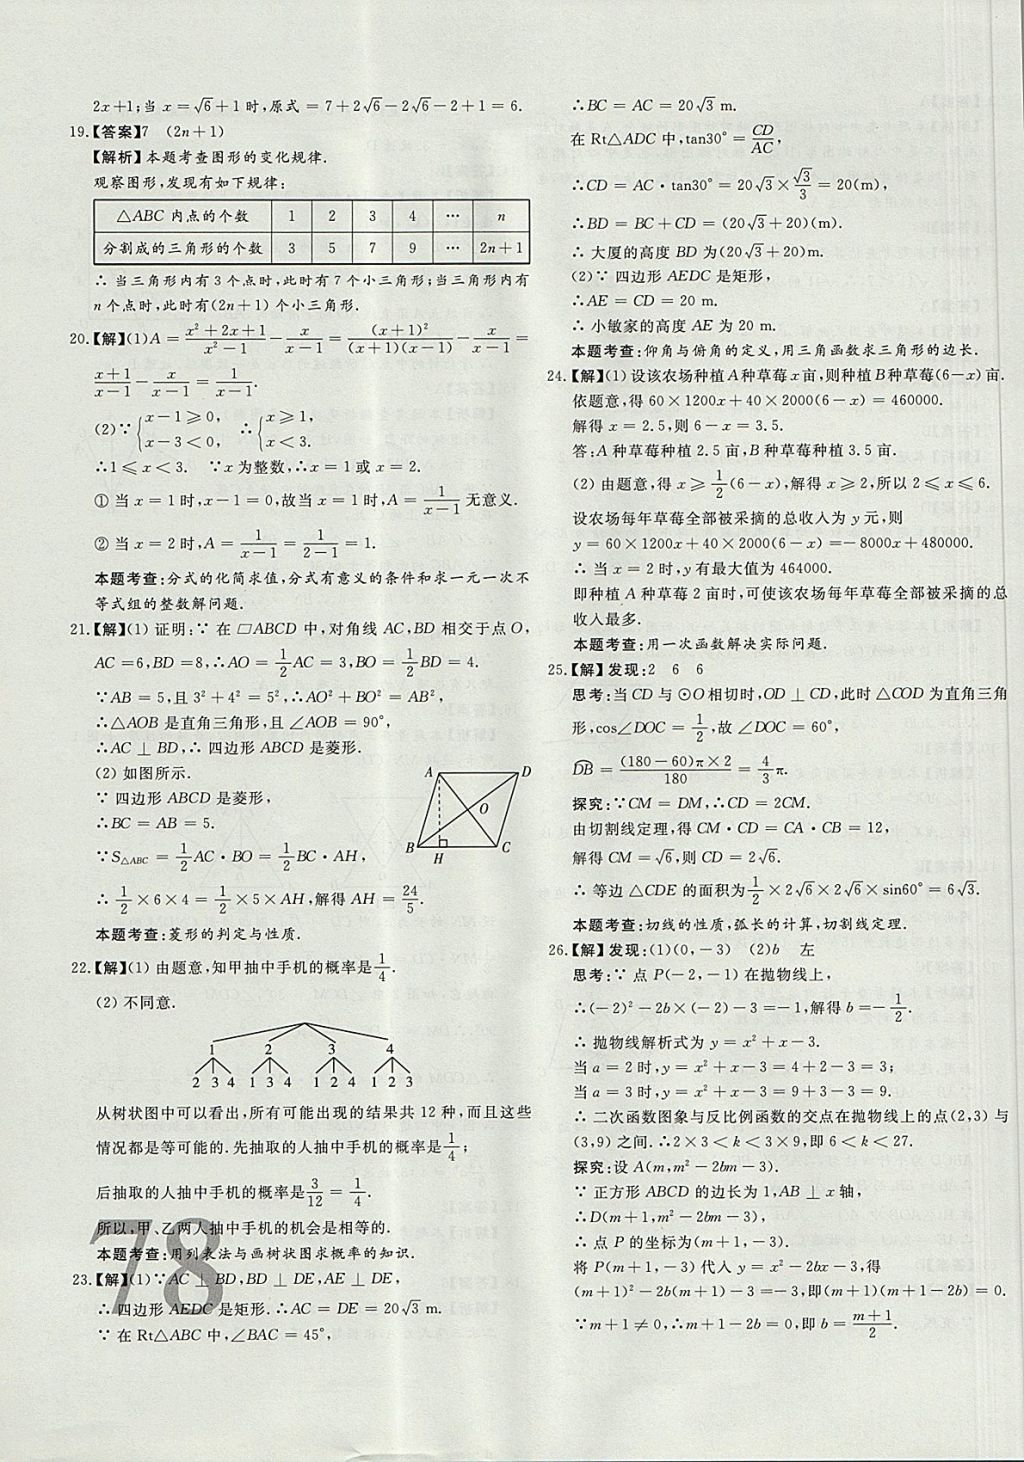 2x+1;当 x=√6+1时,原式=7+2√6-2√6-2+1=6.
19.【答案】7 (2n+1)
【解析】本题考查图形的变化规律.
观察图形,发现有如下规律:
△ABC内点的个数 1 2 3 4 … n
分割成的三角形的个数 3 5 7 9 … 2n+1
∴当三角形内有3个点时,此时有7个小三角形;当三角形内有
n个点时,此时有(2n+1)个小三角形.
20.【解】(1)A=(x²+2x+1)/(x²-1)-x/(x-1)=(x+1)²/((x+1)(x-1))-x/(x-1)=
(x+1)/(x-1)-x/(x-1)=1/(x-1).
(2)∵{x-1⩾0, x-3<0, ∴{x⩾1, x<3.
∴1⩽x<3. ∵x为整数,∴x=1或x=2.
①当x=1时,x-1=0,故当x=1时,A=1/(x-1)无意义.
②当x=2时,A=1/(x-1)=1/(2-1)=1.
本题考查:分式的化简求值,分式有意义的条件和求一元一次不
等式组的整数解问题.
21.【解】(1)证明:∵在□ABCD中,对角线AC,BD相交于点O,
AC=6,BD=8,∴AO=1/2AC=3,BO=1/2BD=4.
∵AB=5,且3²+4²=5²,∴AO²+BO²=AB²,
∴△AOB是直角三角形,且∠AOB=90°,
∴AC⊥BD,∴四边形ABCD是菱形.
(2)如图所示.
∵四边形ABCD是菱形,
∴BC=AB=5.
∵S△ABC=1/2AC·BO=1/2BC·AH,
∴1/2×6×4=1/2×5×AH,解得AH=24/5.
A D
O
B H C
本题考查:菱形的判定与性质.
22.【解】(1)由题意,知甲抽中手机的概率是1/4.
(2)不同意.
1 2 3 4
2 3 4 1 3 4 1 2 4 1 2 3
从树状图中可以看出,所有可能出现的结果共12种,而且这些
情况都是等可能的.先抽取的人抽中手机的概率是1/4;
后抽取的人抽中手机的概率是3/12=1/4.
所以,甲、乙两人抽中手机的机会是相等的.
本题考查:用列表法与画树状图求概率的知识.
23.【解】(1)∵AC⊥BD,BD⊥DE,AE⊥DE,
∴四边形AEDC是矩形.∴AC=DE=20√3 m.
∵在Rt△ABC中,∠BAC=45°,
78
∴BC=AC=20√3 m.
在Rt△ADC中,tan30°=CD/AC,
∴CD=AC·tan30°=20√3×√3/3=20(m),
∴BD=BC+CD=(20√3+20)(m).
∴大厦的高度BD为(20√3+20)m.
(2)∵四边形AEDC是矩形,
∴AE=CD=20 m.
∴小敏家的高度AE为20 m.
本题考查:仰角与俯角的定义,用三角函数求三角形的边长.
24.【解】(1)设该农场种植A种草莓x亩,则种植B种草莓(6-x)亩.
依题意,得60×1200x+40×2000(6-x)=460000.
解得x=2.5,则6-x=3.5.
答:A种草莓种植2.5亩,B种草莓种植3.5亩.
(2)由题意,得x⩾1/2(6-x),解得x⩾2,所以2⩽x⩽6.
设农场每年草莓全部被采摘的总收入为y元,则
y=60×1200x+40×2000(6-x)=-8000x+480000.
∴当x=2时,y有最大值为464000.
即种植A种草莓2亩时,可使该农场每年草莓全部被采摘的总
收入最多.
本题考查:用一次函数解决实际问题.
25.【解】发现:2 6 6
思考:当CD与⊙O相切时,OD⊥CD,此时△COD为直角三角
形,cos∠DOC=1/2,故∠DOC=60°,
DB⌒=(180-60)π×2/180=4/3π.
探究:∵CM=DM,∴CD=2CM.
由切割线定理,得CM·CD=CA·CB=12,
解得CM=√6,则CD=2√6.
∴等边△CDE的面积为1/2×2√6×2√6×sin60°=6√3.
本题考查:切线的性质,弧长的计算,切割线定理.
26.【解】发现:(1)(0,-3) (2)b 左
思考:∵点P(-2,-1)在抛物线上,
∴(-2)²-2b×(-2)-3=-1,解得b=-1/2.
∴抛物线解析式为y=x²+x-3.
当a=2时,y=x²+x-3=4+2-3=3;
当a=3时,y=x²+x-3=9+3-3=9.
∴二次函数图象与反比例函数的交点在抛物线上的点(2,3)与
(3,9)之间.∴2×3<k<3×9,即6<k<27.
探究:设A(m,m²-2bm-3).
∵正方形ABCD的边长为1,AB⊥x轴,
∴D(m+1,m²-2bm-3),
∴点P的坐标为(m+1,-3).
将P(m+1,-3)代入y=x²-2bx-3,得
(m+1)²-2b(m+1)-3=-3,即(m+1)(m+1-2b)=0.
∵m+1≠0,∴m+1-2b=0,即b=(m+1)/2.